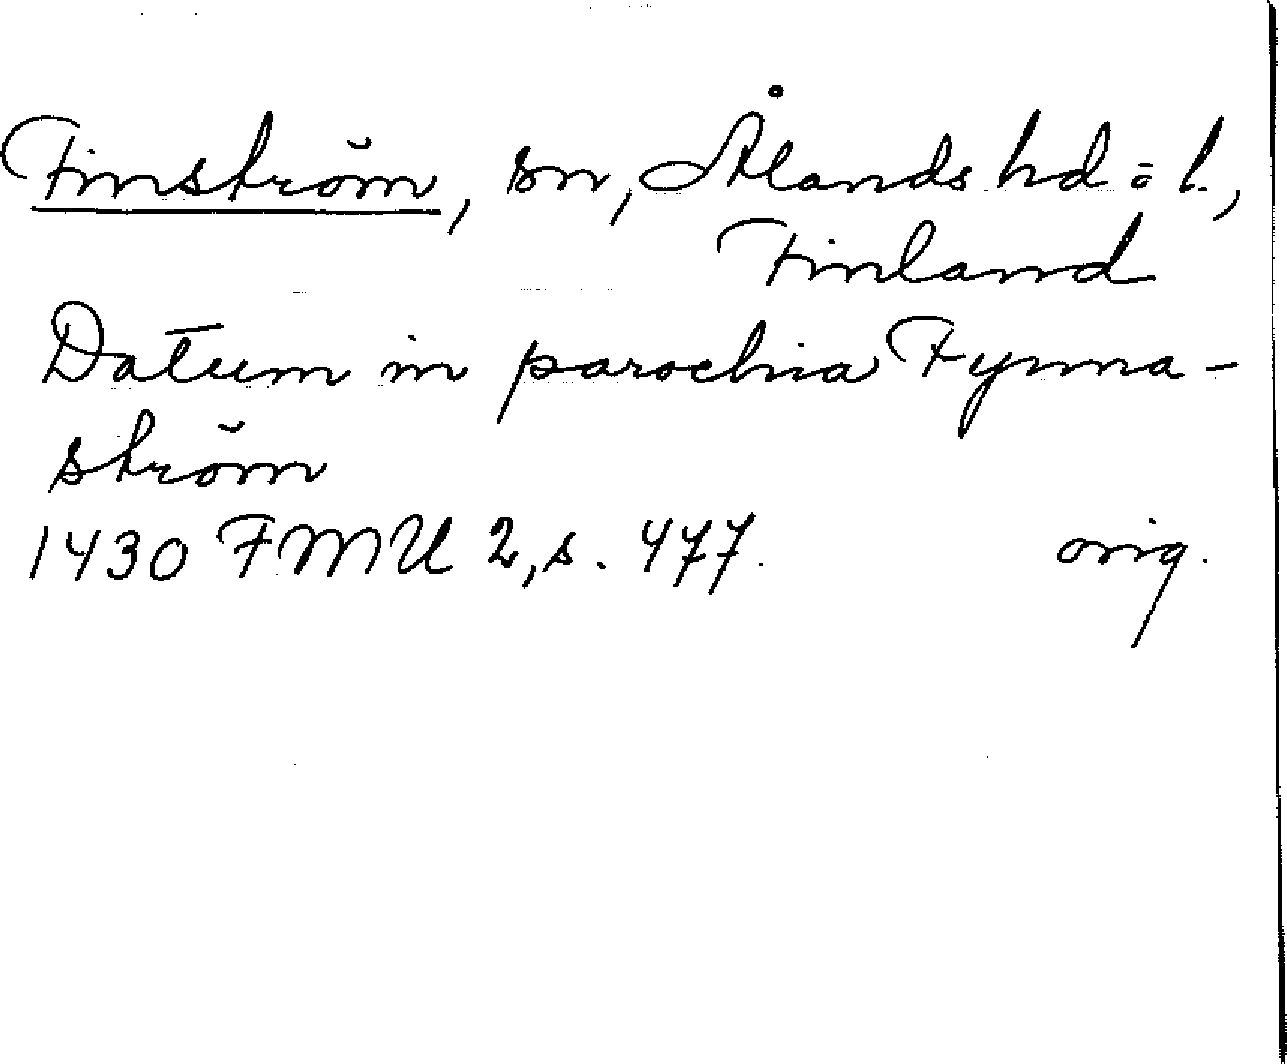 Finström, sn, Ålands hd o l.,
Finland
Datum in parochia Fynna-
ström
1430 FMU 2, s. 477. orig.